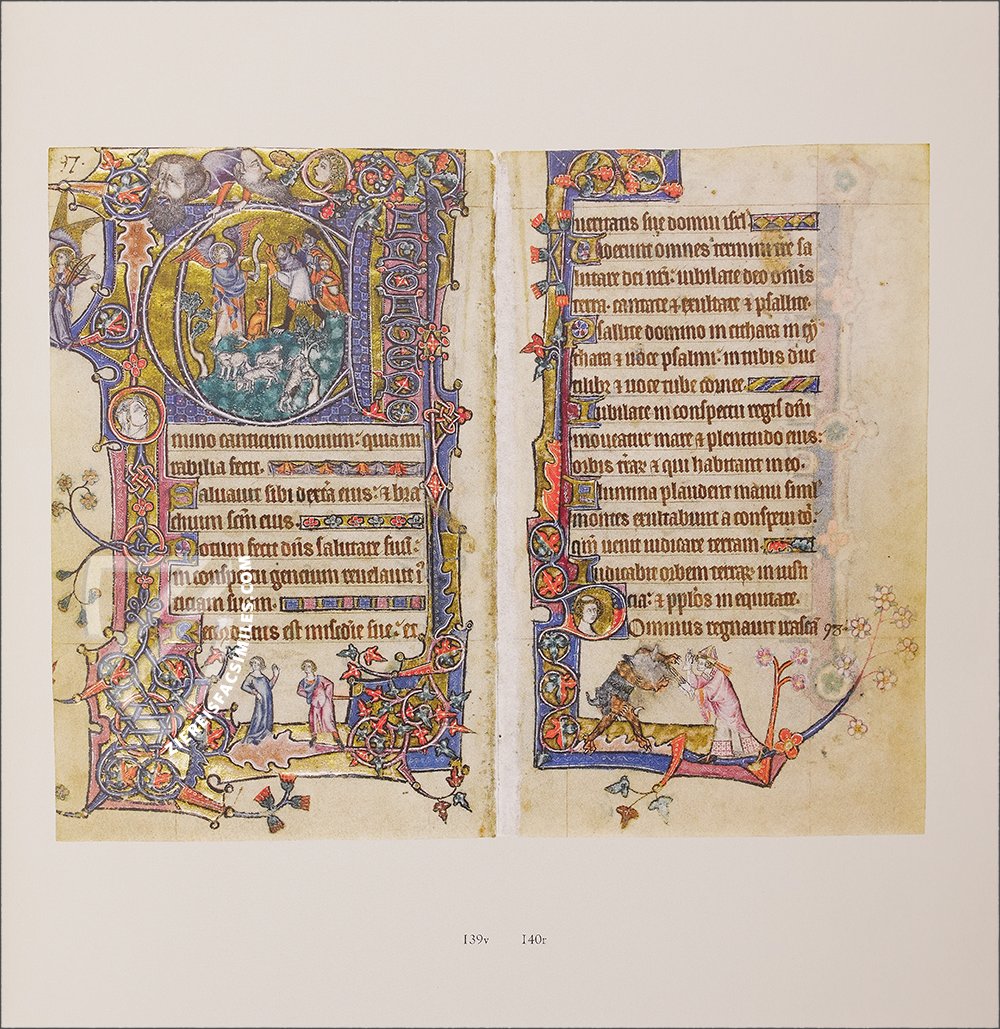 97.
C
mino canticum novum: quia mi
rabilia fecit.
Salvavit sibi dextra eius: & bra
chium scm eius.
Notum fecit dns salutare suu:
in conspectu gencium revelavit i
ticiam suam.
Recordatus est misedie sue: et
veritatis sue domui isrl
viderunt omnes termini tre sa
lutare dei nri: iubilate deo omis
terra: cantate & exultate & psallite.
Psallite domino in cithara in cy
thara & voce psalmi: in tubis duc
tilibz & voce tube cornee.
Iubilate in conspectu regis dni
moveatur mare & plenitudo eius:
orbis trar & qui habitant in eo.
flumina plaudent manu simul
montes exultabunt a conspectu do:
qm venit iudicare terram.
Iudicabit orbem terrar in iusti
cia: & pplos in equitate.
Dominus regnavit irasca 98
ZIEREISFACSIMILES.COM
139v 140r